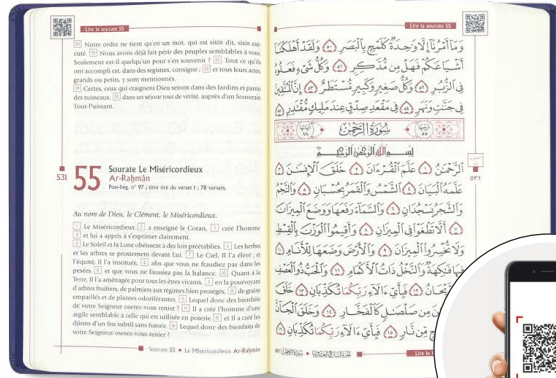 Lire la sourate 55
50 Notre ordre ne tient qu'en un mot, qui est sitôt dit, sitôt exé-
cuté. 51 Nous avons déjà fait périr des peuples semblables à vous.
Seulement est-il quelqu'un pour s'en souvenir ? 52 Tout ce qu'ils
ont accompli est, dans des registres, consigné ; 53 et tous leurs actes,
grands ou petits, y sont mentionnés.
54 Certes, ceux qui craignent Dieu seront dans des Jardins et parmi
des ruisseaux, 55 dans un séjour tout de vérité, auprès d'un Souverain
Tout-Puissant.
531
55
Sourate Le Miséricordieux
Ar-Rahmân
Post-hég. n° 97 ; titre tiré du verset 1 ; 78 versets.
Au nom de Dieu, le Clément, le Miséricordieux.
1 Le Miséricordieux 2 a enseigné le Coran, 3 créé l'homme
4 et lui a appris à s'exprimer clairement.
5 Le Soleil et la Lune obéissent à des lois préétablies. 6 Les herbes
et les arbres se prosternent devant Lui. 7 Le Ciel, Il l'a élevé ; et
l'équité, Il l'a instituée, 8 afin que vous ne fraudiez pas dans les
pesées 9 et que vous ne faussiez pas la balance. 10 Quant à la
Terre, Il l'a aménagée pour tous les êtres vivants, 11 en la pourvoyant
d'arbres fruitiers, de palmiers aux régimes bien protégés, 12 de grains
empaillés et de plantes odoriférantes. 13 Lequel donc des bienfaits
de votre Seigneur oserez-vous renier ? 14 Il a créé l'homme d'une
argile semblable à celle qui est utilisée en poterie 15 et Il a créé les
djinns d'un feu subtil sans fumée. 16 Lequel donc des bienfaits de
votre Seigneur oserez-vous renier ?
Sourate 55 • Le Miséricordieux Ar-Rahmân
Lire la sourate 55
وَمَآ أَمْرُنَآ إِلَّا وَٰحِدَةٌ كَلَمْحٍۭ بِٱلْبَصَرِ ۝٥٠ وَلَقَدْ أَهْلَكْنَآ
أَشْيَاعَكُمْ فَهَلْ مِن مُّدَّكِرٍ ۝٥١ وَكُلُّ شَىْءٍ فَعَلُوهُ
فِى ٱلزُّبُرِ ۝٥٢ وَكُلُّ صَغِيرٍ وَكَبِيرٍ مُّسْتَطَرٌ ۝٥٣ إِنَّ ٱلْمُتَّقِينَ
فِى جَنَّٰتٍ وَنَهَرٍ ۝٥٤ فِى مَقْعَدِ صِدْقٍ عِندَ مَلِيكٍ مُّقْتَدِرٍۭ ۝٥٥
سُورَةُ الرَّحْمٰن
بِسْمِ ٱللَّهِ ٱلرَّحْمَٰنِ ٱلرَّحِيمِ
ٱلرَّحْمَٰنُ ۝١ عَلَّمَ ٱلْقُرْءَانَ ۝٢ خَلَقَ ٱلْإِنسَٰنَ ۝٣
عَلَّمَهُ ٱلْبَيَانَ ۝٤ ٱلشَّمْسُ وَٱلْقَمَرُ بِحُسْبَانٍ ۝٥ وَٱلنَّجْمُ
وَٱلشَّجَرُ يَسْجُدَانِ ۝٦ وَٱلسَّمَآءَ رَفَعَهَا وَوَضَعَ ٱلْمِيزَانَ
۝٧ أَلَّا تَطْغَوْا۟ فِى ٱلْمِيزَانِ ۝٨ وَأَقِيمُوا۟ ٱلْوَزْنَ بِٱلْقِسْطِ
وَلَا تُخْسِرُوا۟ ٱلْمِيزَانَ ۝٩ وَٱلْأَرْضَ وَضَعَهَا لِلْأَنَامِ ۝١٠
فِيهَا فَٰكِهَةٌ وَٱلنَّخْلُ ذَاتُ ٱلْأَكْمَامِ ۝١١ وَٱلْحَبُّ ذُو ٱلْعَصْفِ
وَٱلرَّيْحَانُ ۝١٢ فَبِأَىِّ ءَالَآءِ رَبِّكُمَا تُكَذِّبَانِ ۝١٣
مِن صَلْصَٰلٍ كَٱلْفَخَّارِ ۝١٤ وَخَلَقَ ٱلْجَآنَّ
مِّن نَّارٍ ۝١٥ فَبِأَىِّ ءَالَآءِ رَبِّكُمَا تُكَذِّبَانِ ۝١٦
٥٣١
Lire la